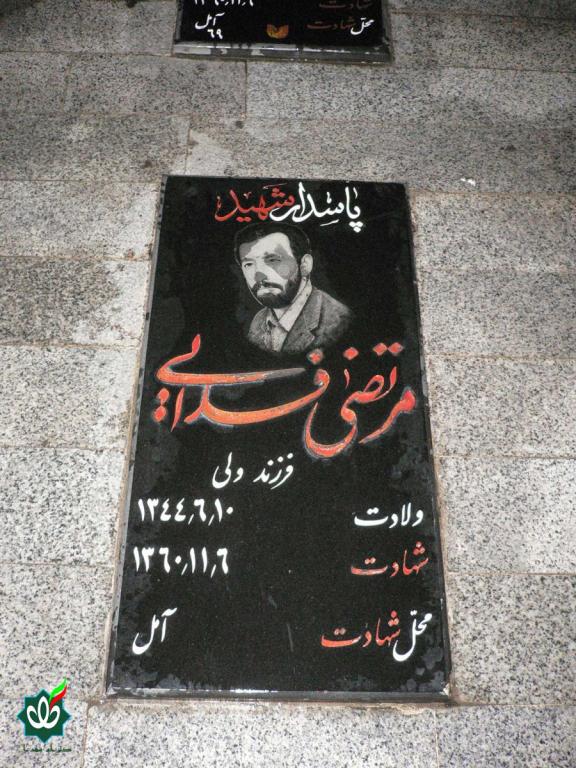 محل شهادت آمل
۶۹
پاسدار شهید
مرتضی فدایی
فرزند ولی
ولادت ۱۳۴۴٫۶٫۱۰
شهادت ۱۳۶۰٫۱۱٫۶
محلّ شهادت آمل